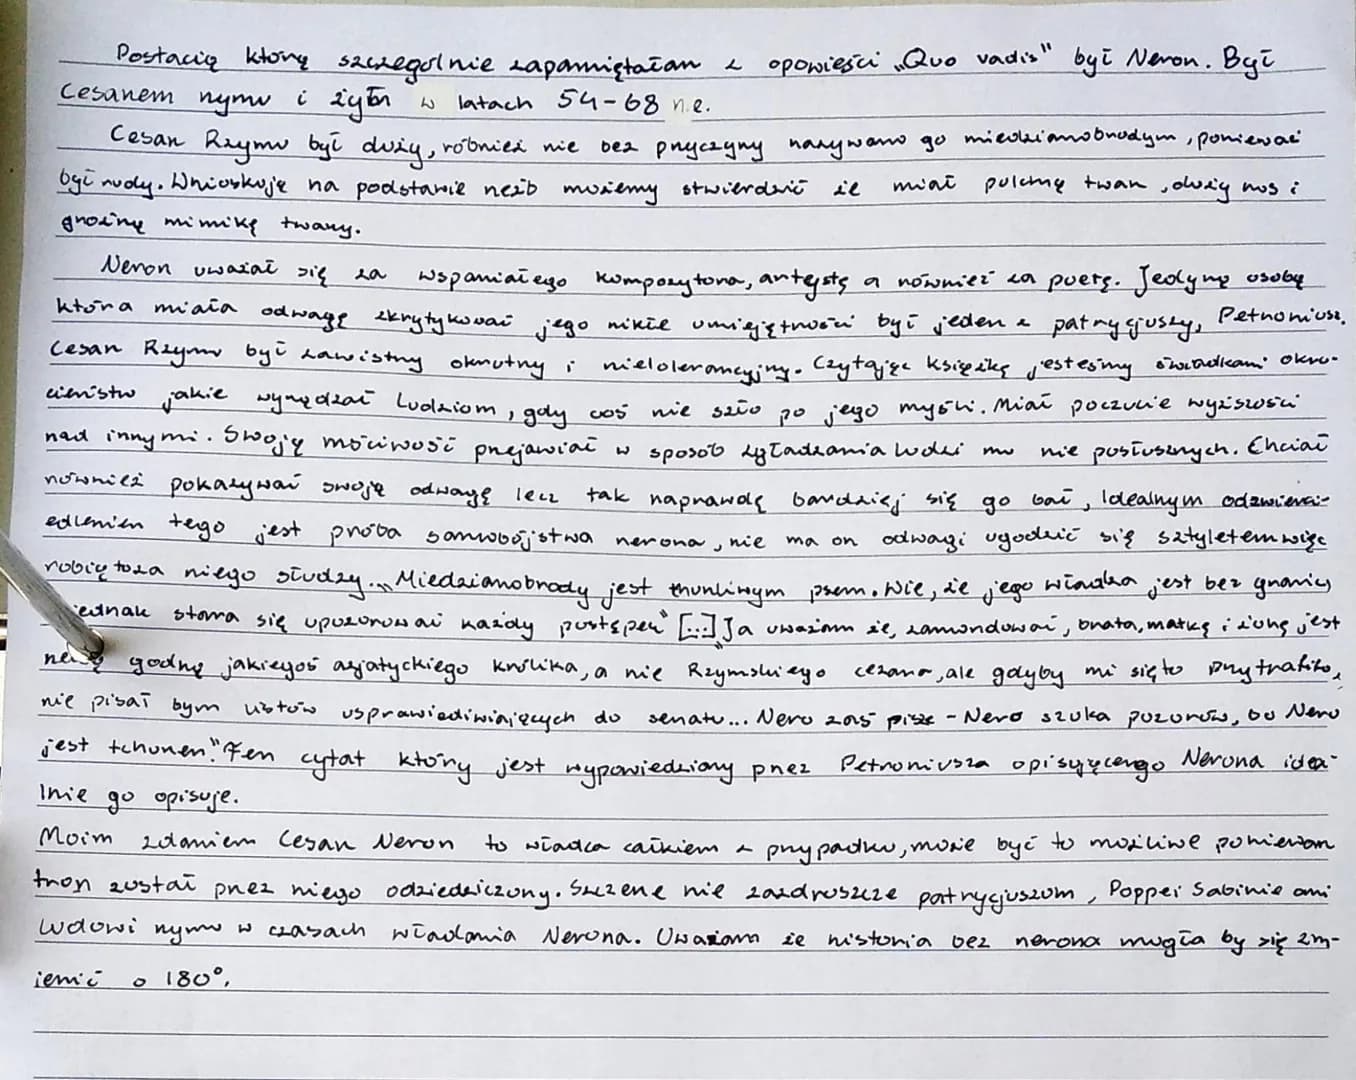 Postacią którą szczególnie zapamiętałam z opowieści „Quo vadis" był Neron. Był
Cesarzem rzymu i żył w latach 54-68 n.e.
Cesarz Rzymu był duży, róbnież nie bez przyczyny nazywano go miedzianobrodym, ponieważ
był rudy. Wnioskuję na podstawie rzeźb możemy stwierdzić że miał pulchną twarz, duży nos i
groźną mimikę twarzy.
Neron uważał się za wspaniałego kompozytora, artystę a również za poetę. Jedyną osobą
która miała odwagę skrytykować jego nikłe umiejętności był jeden z patrycjuszy, Petroniusz.
Cesarz Rzymu był zawistny okrutny i nietolerancyjny. Czytając książkę jesteśmy świadkami okru-
cieństw jakie wyrządzał ludziom, gdy coś nie szło po jego myśli. Miał poczucie wyższości
nad innymi. Swoją mściwość przejawiał w sposób zgładzania ludzi mu nie posłusznych. Chciał
również pokazywać swoją odwagę lecz tak naprawdę bardziej się go bał, Idealnym odzwierci-
edleniem tego jest próba samobójstwa nerona, nie ma on odwagi ugodzić się sztyletem więc
robią to za niego słudzy. „Miedzianobrody jest thurliwym psem. Wie, że jego władza jest bez granic,
jednak stara się upozorować każdy postępek" [...] „Ja uważam że, zamordować, brata, matkę i żonę jest
godną jakiegoś azjatyckiego królika, a nie Rzymskiego cezara, ale gdyby mi się to przytrafiło,
nie pisał bym listów usprawiedliwiających do senatu... Nero zaś pisze - Nero szuka pozorów, bo Nero
jest tchórzem." Ten cytat który jest wypowiedziany przez Petroniusza opisującego Nerona idea-
lnie go opisuje.
Moim zdaniem Cesarz Neron to władca całkiem z przypadku, może być to możliwe ponieważ
tron został przez niego odziedziczony. Szczerze nie zazdroszcze patrycjuszom, Poppei Sabinie ani
ludowi rzymu w czasach władania Nerona. Uważam że historia bez nerona mogła by się zm-
ienić o 180°.